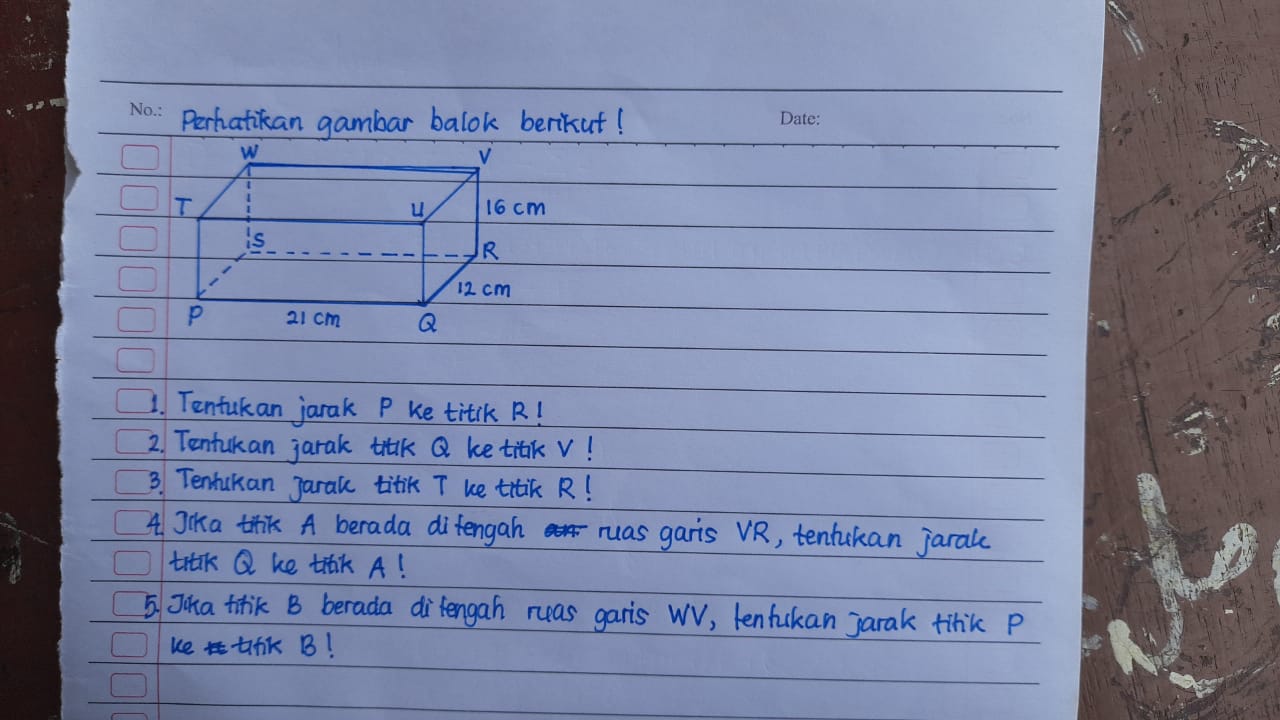 No.: Perhatikan gambar balok berikut! Date:
W V
T U 16 cm
S R
12 cm
P 21 cm Q
1. Tentukan jarak P ke titik R!
2. Tentukan jarak titik Q ke titik V!
3. Tentukan jarak titik T ke titik R!
4. Jika titik A berada di tengah ruas garis VR, tentukan jarak
titik Q ke titik A!
5. Jika titik B berada di tengah ruas garis WV, tentukan jarak titik P
ke titik B!